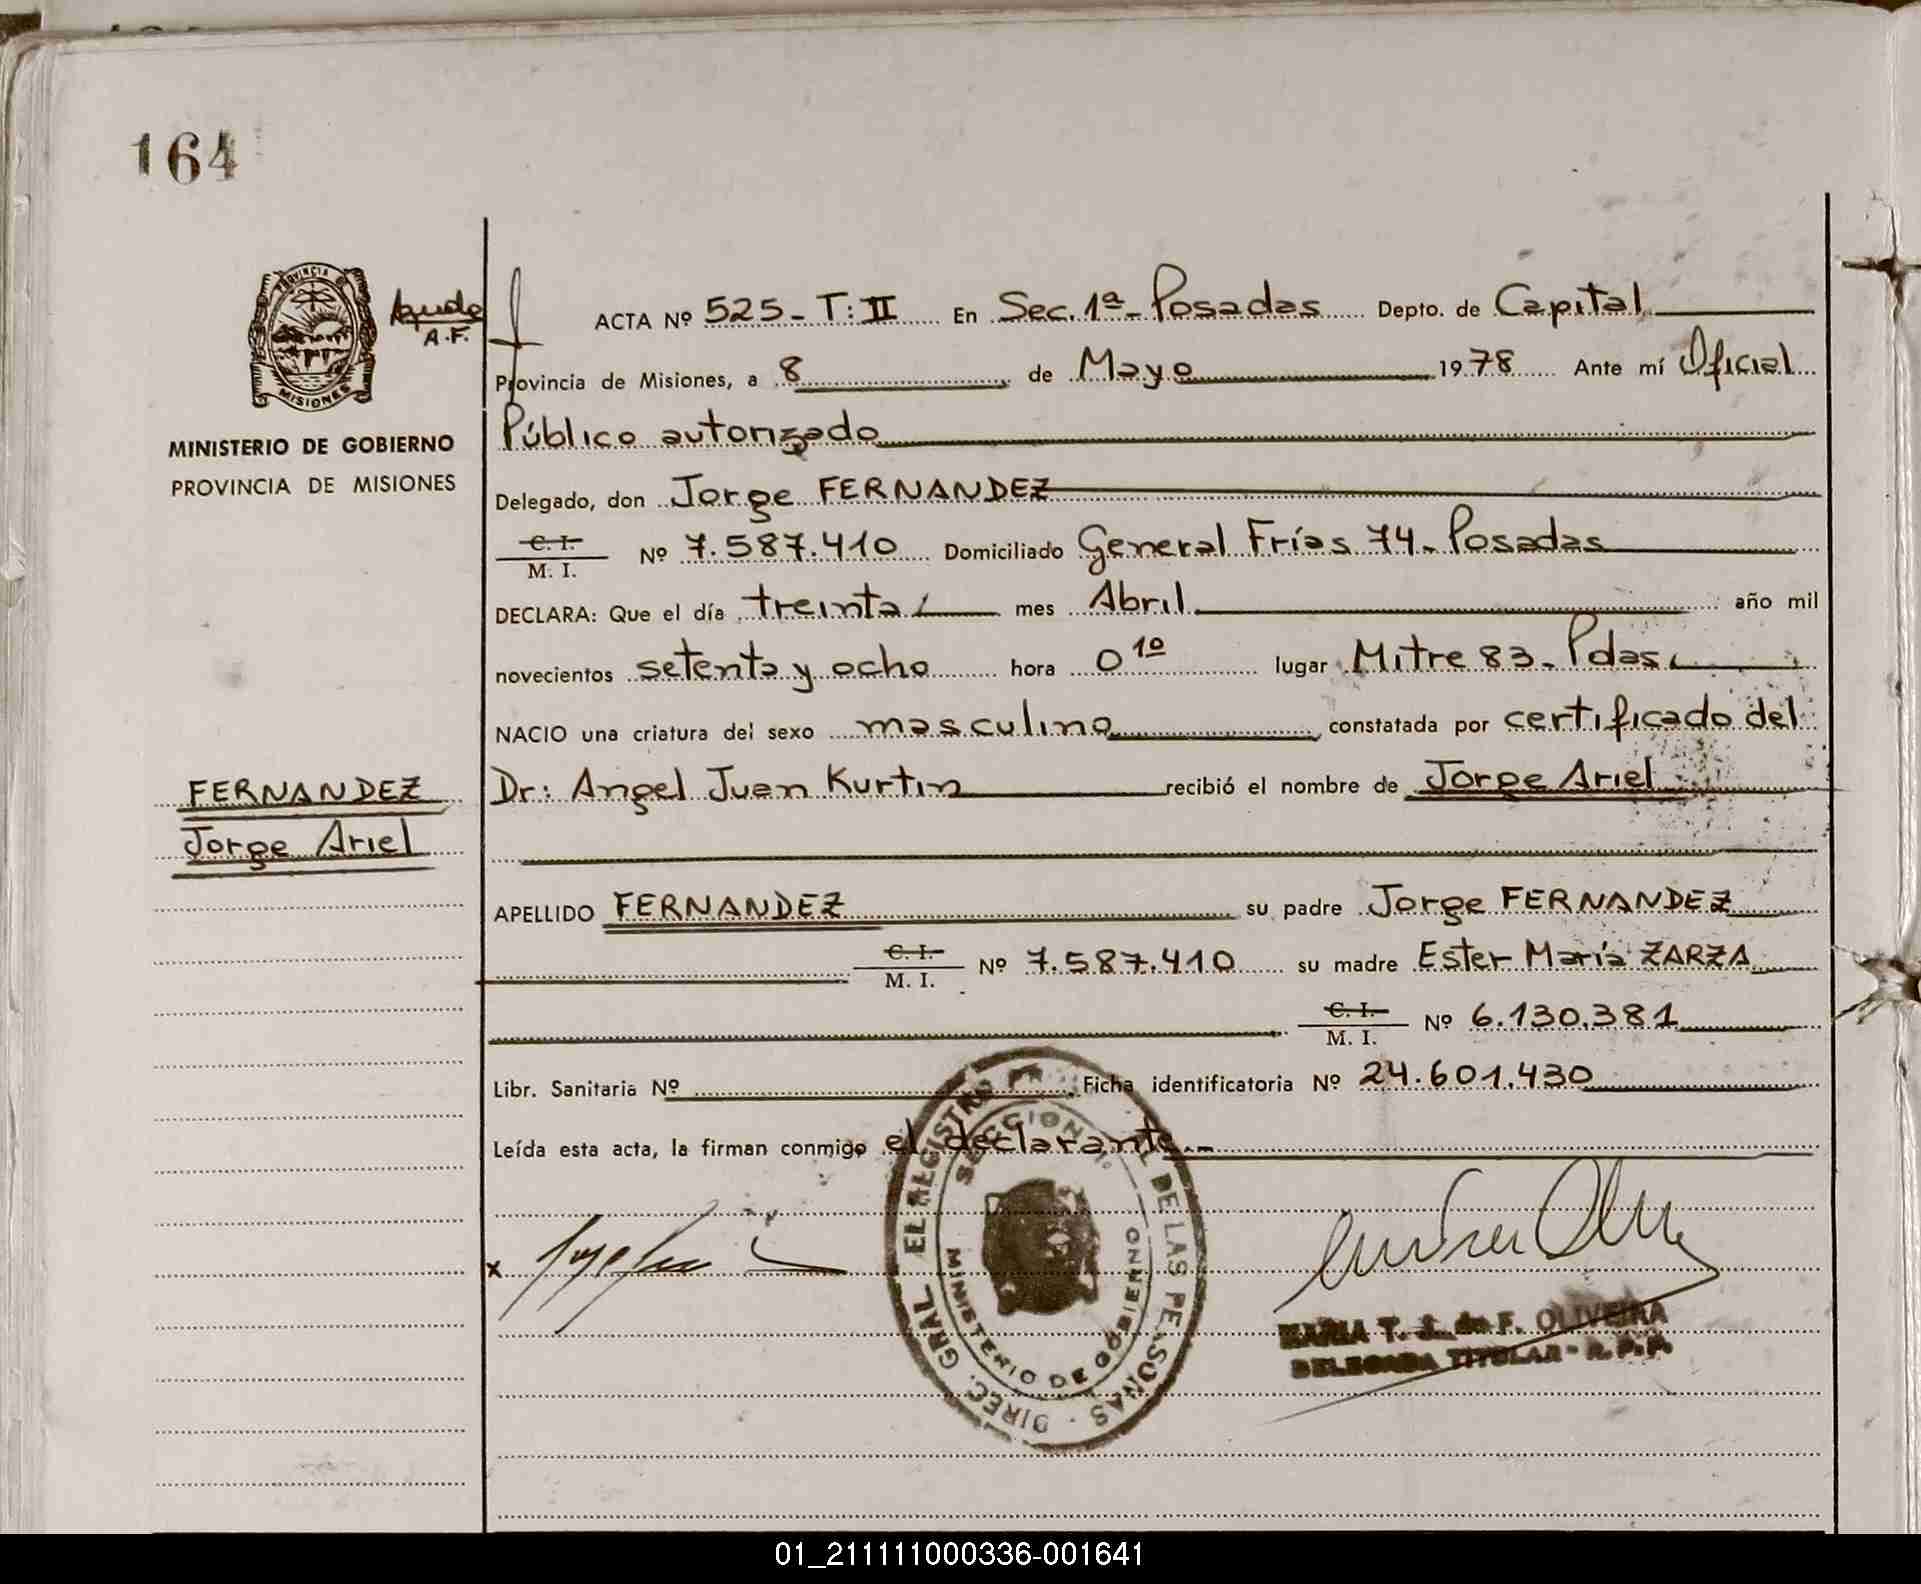 164
PROVINCIA DE
MISIONES
A.F.
MINISTERIO DE GOBIERNO
PROVINCIA DE MISIONES
FERNANDEZ
Jorge Ariel
ACTA Nº 525 - T: II En Sec. 1ª - Posadas Depto. de Capital
Provincia de Misiones, a 8 de Mayo 1978 Ante mí Oficial
Público autorizado
Delegado, don Jorge FERNANDEZ
C. I.
M. I. Nº 7.587.410 Domiciliado General Frías 74 - Posadas
DECLARA: Que el día treinta mes Abril año mil
novecientos setenta y ocho hora 0 10 lugar Mitre 83 - Pdas.
NACIO una criatura del sexo masculino constatada por certificado del
Dr: Angel Juan Kurtin recibió el nombre de Jorge Ariel
APELLIDO FERNANDEZ su padre Jorge FERNANDEZ
C. I.
M. I. Nº 7.587.410 su madre Ester María ZARZA
C. I.
M. I. Nº 6.130.381
Libr. Sanitaria Nº Ficha identificatoria Nº 24.601.430
Leída esta acta, la firman conmigo el declarante.-
DIREC. GRAL. EL REGISTRO DE LAS PERSONAS
SECCION 1.
MINISTERIO DE GOBIERNO
x
MARIA T. J. de F. OLIVEIRA
DELEGADA TITULAR - R. P. P.
01_211111000336-001641